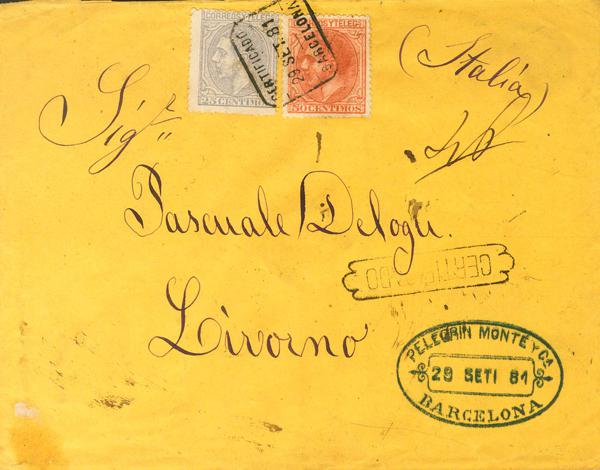 CORREOS Y TELEG
25 CENTIMOS
50 CENTIMOS
CERTIFICADO
29 SET. 81
BARCELONA
(Italia)
Sigr
Pascuale Delogu
Livorno
CERTIFICADO
PELEGRIN MONTE Y Ca
29 SETI 81
BARCELONA